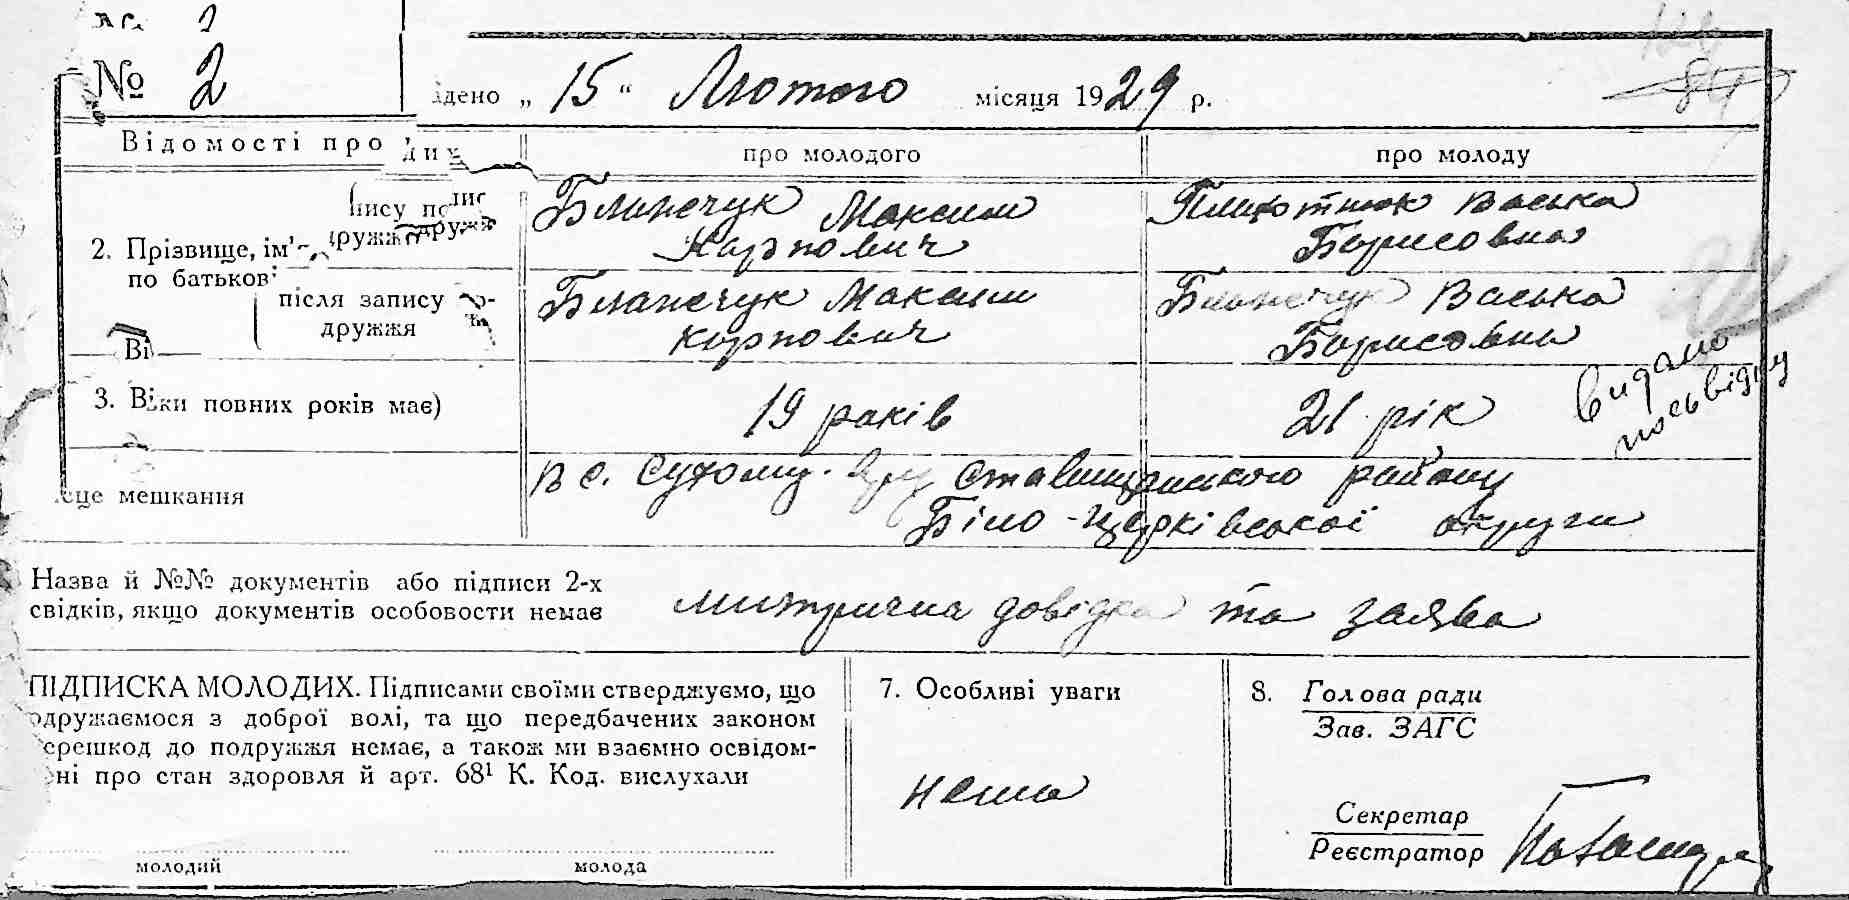 № 2
адено „ 15 “ Лютого місяця 1929 р.
Відомості про
дих
про молодого
про молоду
пису по
дружжя
2. Прізвище, ім’
по батькові
Максим
Карпович
Васька
Борисовна
після запису
дружжя
Максим
Карпович
Васька
Борисовна
Ві
3. Віки повних років має)
19 років
21 рік
видано
посвідку
сце мешкання
в с. Сухому Яру Ставищанського району
Біло-Церківської округи
Назва й №№ документів або підписи 2-х
свідків, якщо документів особовости немає
митрична довідка та заява
ПІДПИСКА МОЛОДИХ. Підписами своїми стверджуємо, що
одружаємося з доброї волі, та що передбачених законом
ерешкод до подружжя немає, а також ми взаємно освідом-
ені про стан здоровля й арт. 68¹ К. Код. вислухали
молодий
молода
7. Особливі уваги
нема
8. Голова ради
Зав. ЗАГС
Секретар
Реєстратор